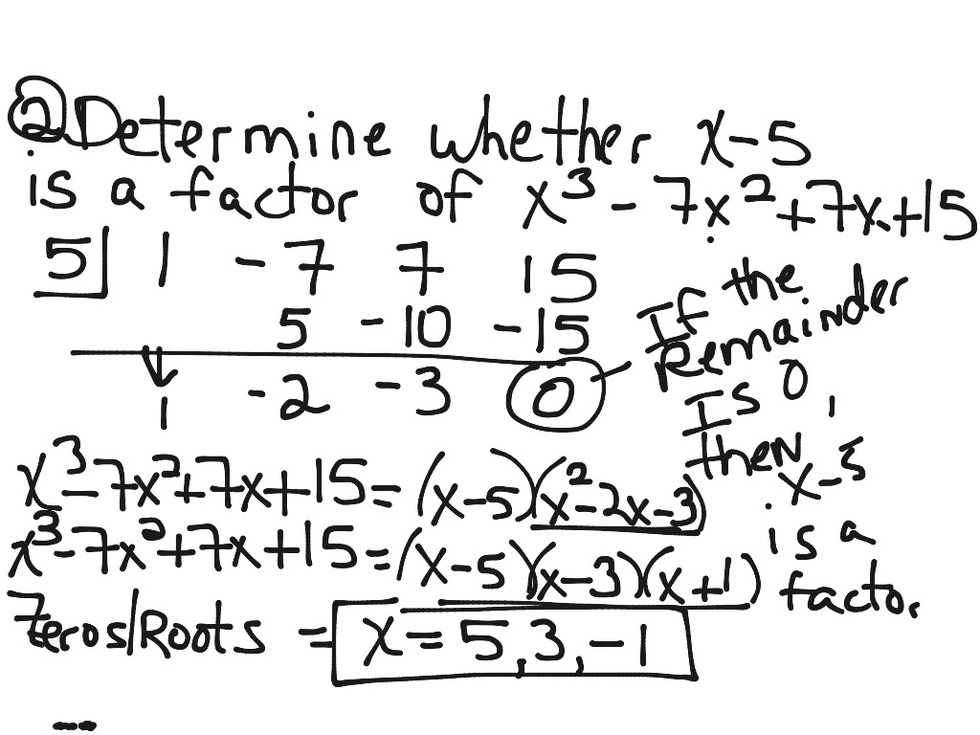 ② Determine whether x-5
is a factor of x³ - 7x² + 7x + 15
5| 1 -7 7 15
5 -10 -15
1 -2 -3 0
If the
Remainder
Is 0,
then
x-5
is a
factor
x³-7x²+7x+15=(x-5)(x²-2x-3)
x³-7x²+7x+15=(x-5)(x-3)(x+1)
Zeros/Roots = x = 5,3,-1